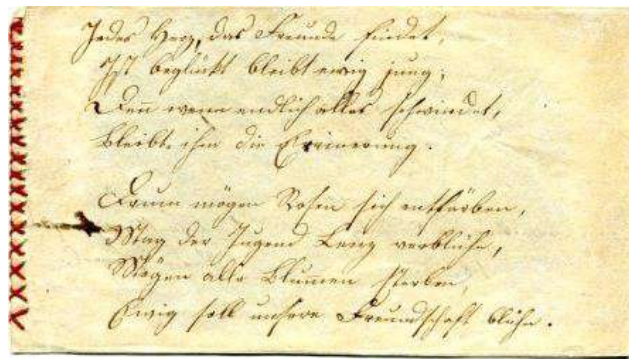 Jedes Herz, das Freunde findet,
Ist beglückt bleibt ewig jung;
Denn wenn endlich alles schwindet,
Bleibt ihm die Erinnerung.
Drum mögen Rosen sich entfärben,
Mag der Jugend Lenz verblühn,
Mögen alle Blumen sterben,
Ewig soll unsere Freundschaft blühn.